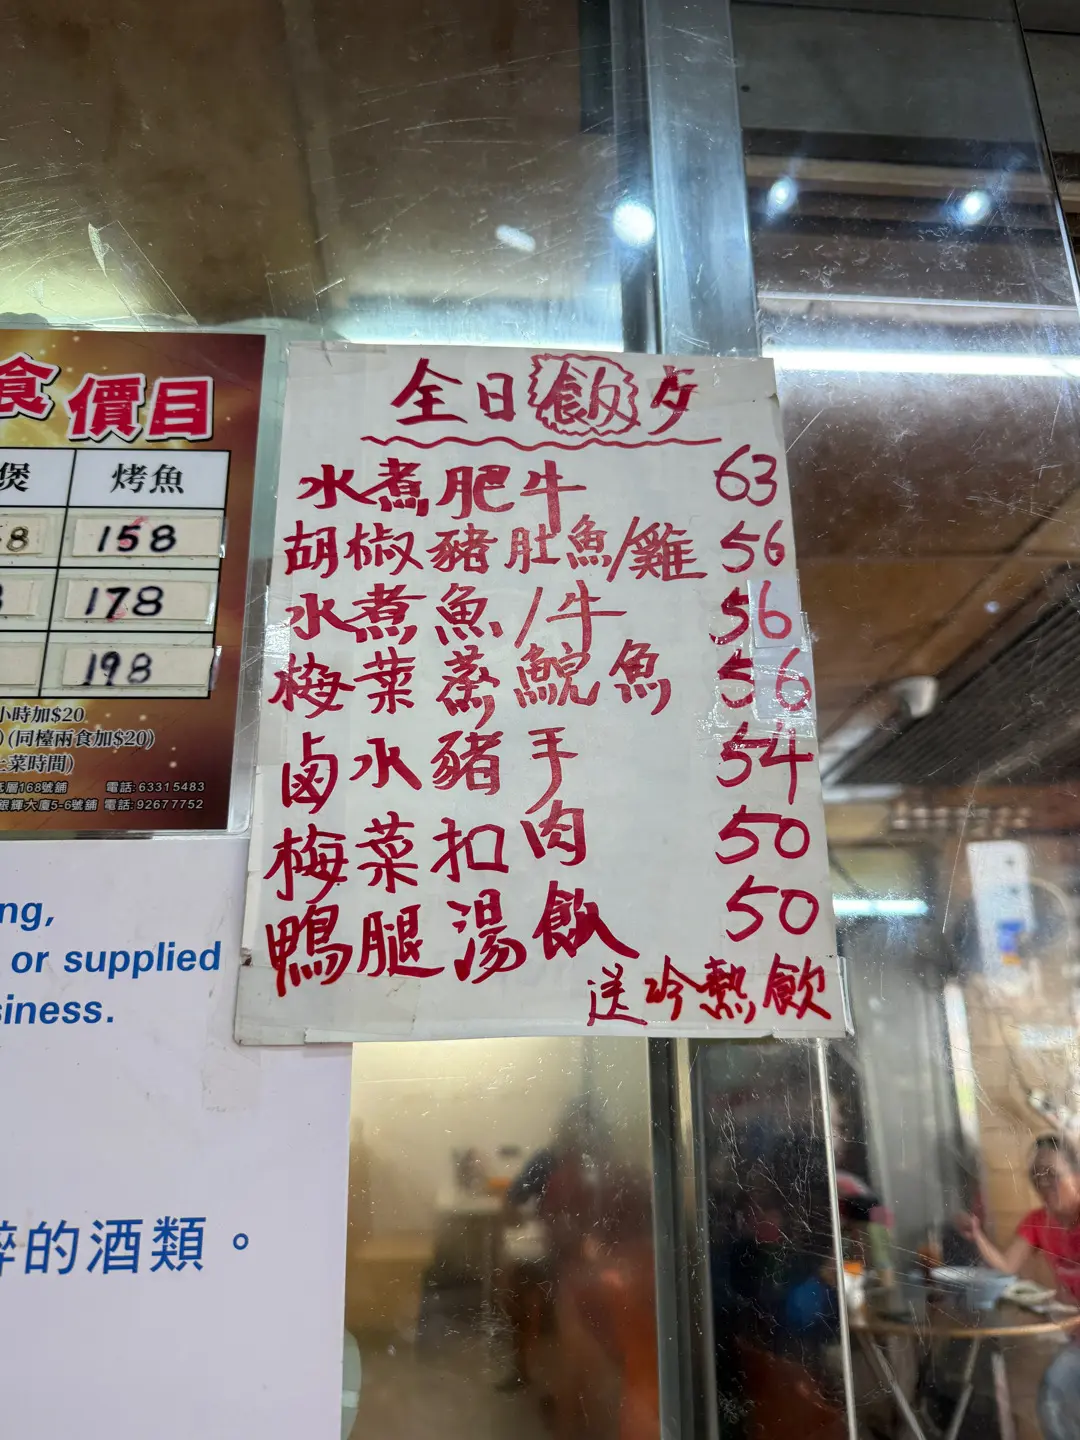 食價目
煲 烤魚
8 158
178
198
小時加$20
(同檯兩食加$20)
菜時間)
層168號舖 電話:63315483
銀輝大廈5-6號舖 電話:92677752
ng,
or supplied
siness.
的酒類。
全日飯歺
水煮肥牛 63
胡椒豬肚魚/雞 56
水煮魚/牛 56
梅菜蒸鯇魚 56
卤水豬手 54
梅菜扣肉 50
鴨腿湯飯 50
送冷熱飲